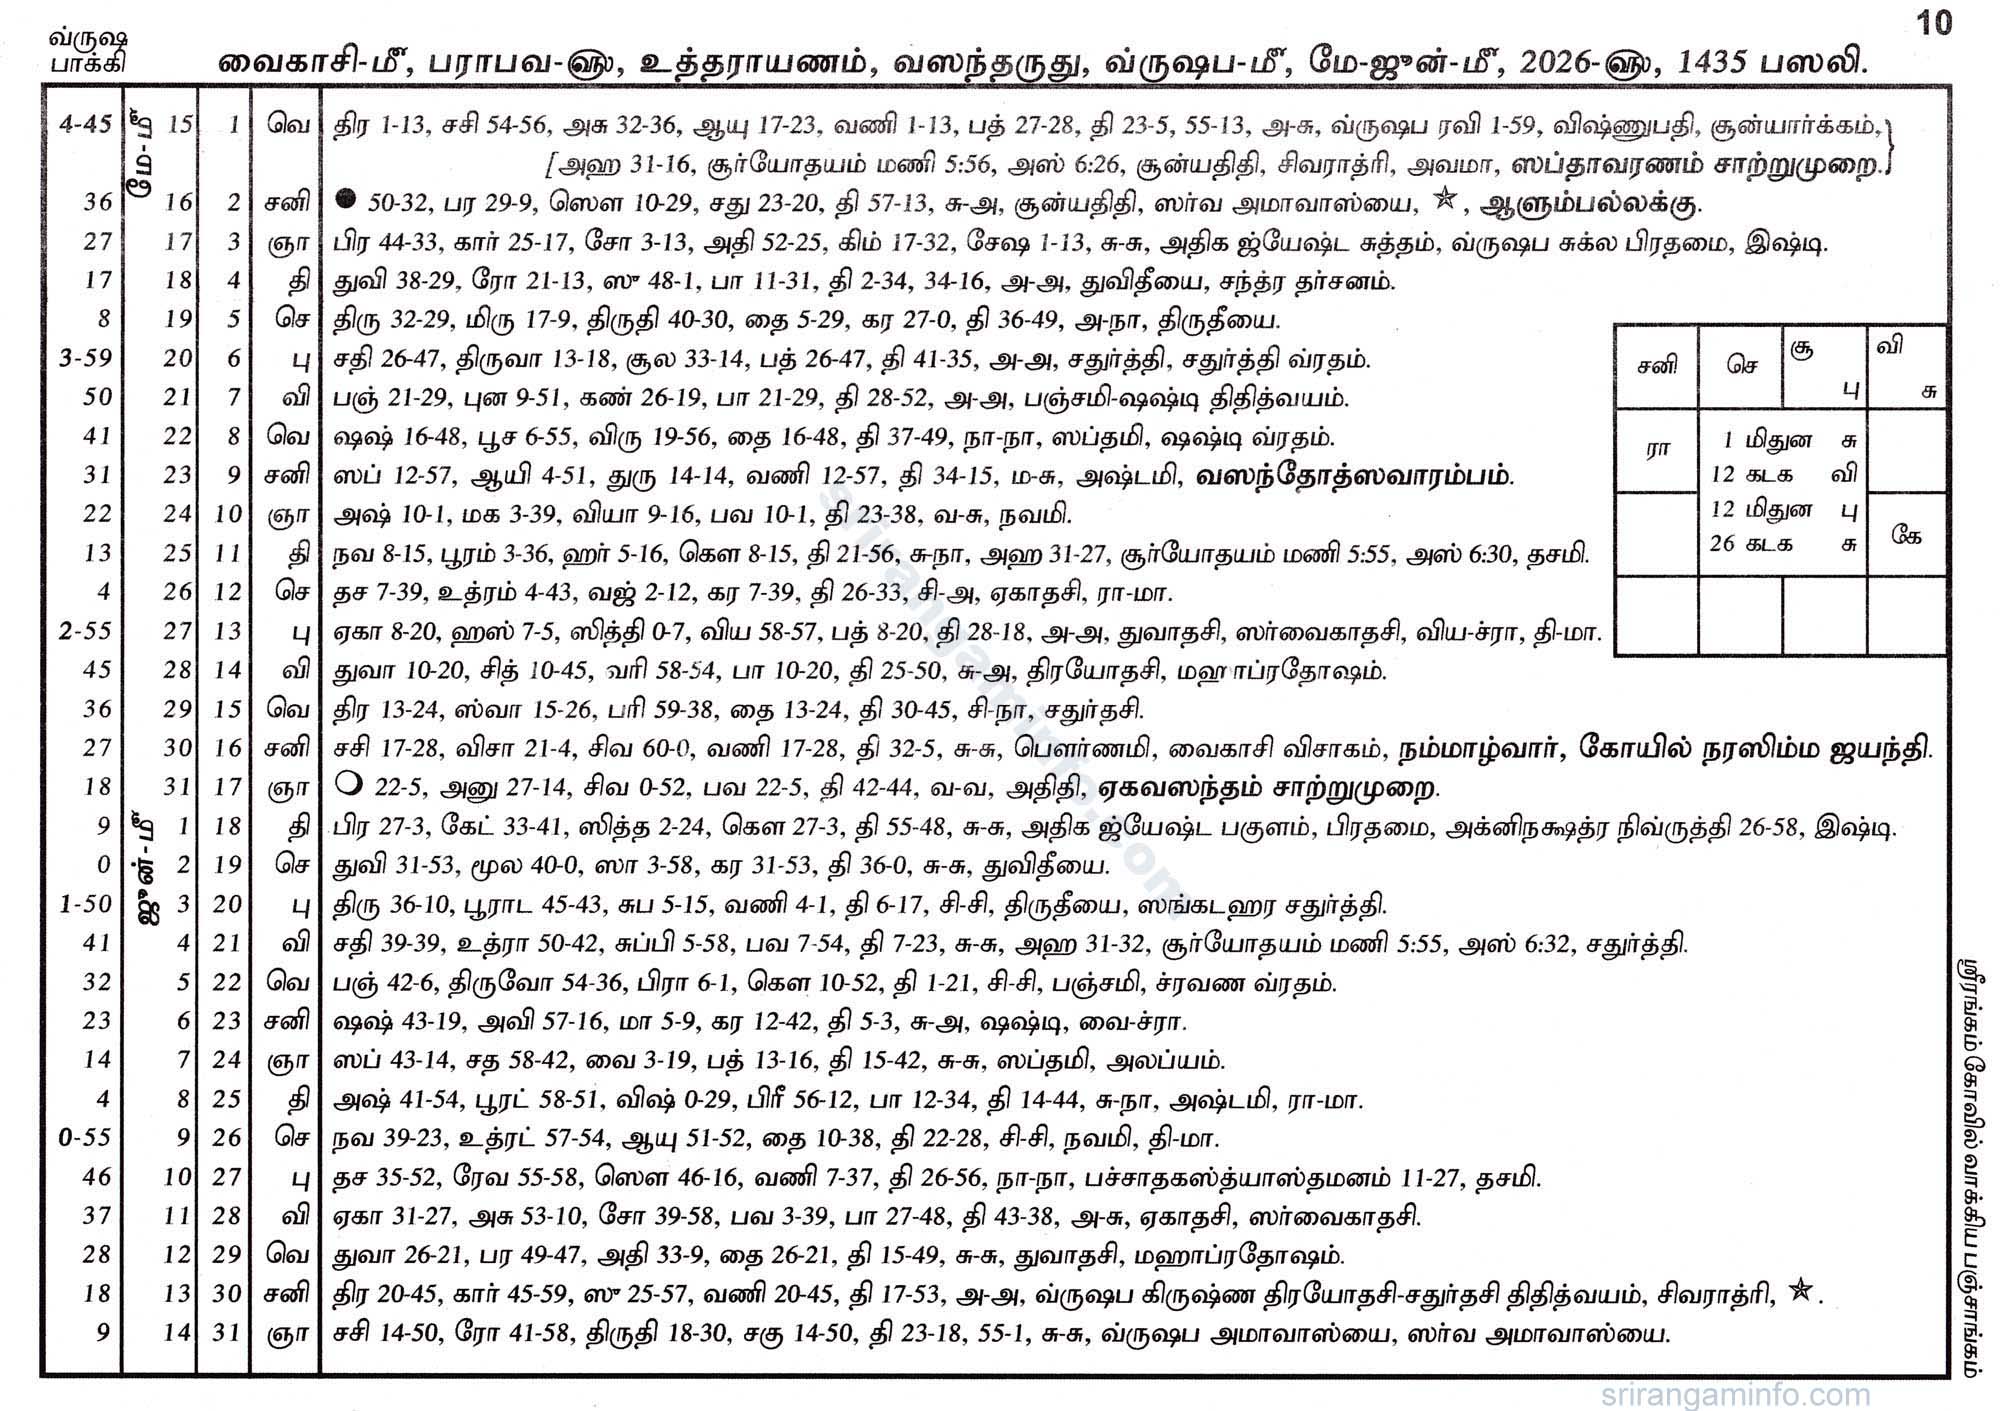 10
வ்ருஷ பாக்கி
வைகாசி-மீ, பராபவ-௵, உத்தராயணம், வஸந்தருது, வ்ருஷப-மீ, மே-ஜுன்-மீ, 2026-௵, 1435 பஸலி.
4-45 மே-மீ 15 1 வெ திர 1-13, சசி 54-56, அசு 32-36, ஆயு 17-23, வணி 1-13, பத் 27-28, தி 23-5, 55-13, அ-சு, வ்ருஷப ரவி 1-59, விஷ்ணுபதி, சூன்யார்க்கம்,
[அஹ 31-16, சூர்யோதயம் மணி 5:56, அஸ் 6:26, சூன்யதிதி, சிவராத்ரி, அவமா, ஸப்தாவரணம் சாற்றுமுறை.]
36 16 2 சனி ● 50-32, பர 29-9, ஸௌ 10-29, சது 23-20, தி 57-13, சு-அ, சூன்யதிதி, ஸர்வ அமாவாஸ்யை, ☆, ஆளும்பல்லக்கு.
27 17 3 ஞா பிர 44-33, கார் 25-17, சோ 3-13, அதி 52-25, கிம் 17-32, சேஷ 1-13, சு-சு, அதிக ஜ்யேஷ்ட சுத்தம், வ்ருஷப சுக்ல பிரதமை, இஷ்டி.
17 18 4 தி துவி 38-29, ரோ 21-13, ஸு 48-1, பா 11-31, தி 2-34, 34-16, அ-அ, துவிதீயை, சந்த்ர தர்சனம்.
8 19 5 செ திரு 32-29, மிரு 17-9, திருதி 40-30, தை 5-29, கர 27-0, தி 36-49, அ-நா, திருதீயை.
3-59 20 6 பு சதி 26-47, திருவா 13-18, சூல 33-14, பத் 26-47, தி 41-35, அ-அ, சதுர்த்தி, சதுர்த்தி வ்ரதம்.
50 21 7 வி பஞ் 21-29, புன 9-51, கண் 26-19, பா 21-29, தி 28-52, அ-அ, பஞ்சமி-ஷஷ்டி திதித்வயம்.
41 22 8 வெ ஷஷ் 16-48, பூச 6-55, விரு 19-56, தை 16-48, தி 37-49, நா-நா, ஸப்தமி, ஷஷ்டி வ்ரதம்.
31 23 9 சனி ஸப் 12-57, ஆயி 4-51, துரு 14-14, வணி 12-57, தி 34-15, ம-சு, அஷ்டமி, வஸந்தோத்ஸவாரம்பம்.
22 24 10 ஞா அஷ் 10-1, மக 3-39, வியா 9-16, பவ 10-1, தி 23-38, வ-சு, நவமி.
13 25 11 தி நவ 8-15, பூரம் 3-36, ஹர் 5-16, கௌ 8-15, தி 21-56, சு-நா, அஹ 31-27, சூர்யோதயம் மணி 5:55, அஸ் 6:30, தசமி.
4 26 12 செ தச 7-39, உத்ரம் 4-43, வஜ் 2-12, கர 7-39, தி 26-33, சி-அ, ஏகாதசி, ரா-மா.
2-55 27 13 பு ஏகா 8-20, ஹஸ் 7-5, ஸித்தி 0-7, விய 58-57, பத் 8-20, தி 28-18, அ-அ, துவாதசி, ஸர்வைகாதசி, விய-ச்ரா, தி-மா.
45 28 14 வி துவா 10-20, சித் 10-45, வரி 58-54, பா 10-20, தி 25-50, சு-அ, திரயோதசி, மஹாப்ரதோஷம்.
36 29 15 வெ திர 13-24, ஸ்வா 15-26, பரி 59-38, தை 13-24, தி 30-45, சி-நா, சதுர்தசி.
27 30 16 சனி சசி 17-28, விசா 21-4, சிவ 60-0, வணி 17-28, தி 32-5, சு-சு, பௌர்ணமி, வைகாசி விசாகம், நம்மாழ்வார், கோயில் நரஸிம்ம ஜயந்தி.
18 31 17 ஞா ○ 22-5, அனு 27-14, சிவ 0-52, பவ 22-5, தி 42-44, வ-வ, அதிதி, ஏகவஸந்தம் சாற்றுமுறை.
9 ஜுன்-மீ 1 18 தி பிர 27-3, கேட் 33-41, ஸித்த 2-24, கௌ 27-3, தி 55-48, சு-சு, அதிக ஜ்யேஷ்ட பகுளம், பிரதமை, அக்னிநக்ஷத்ர நிவ்ருத்தி 26-58, இஷ்டி.
0 2 19 செ துவி 31-53, மூல 40-0, ஸா 3-58, கர 31-53, தி 36-0, சு-சு, துவிதீயை.
1-50 3 20 பு திரு 36-10, பூராட 45-43, சுப 5-15, வணி 4-1, தி 6-17, சி-சி, திருதீயை, ஸங்கடஹர சதுர்த்தி.
41 4 21 வி சதி 39-39, உத்ரா 50-42, சுப்பி 5-58, பவ 7-54, தி 7-23, சு-சு, அஹ 31-32, சூர்யோதயம் மணி 5:55, அஸ் 6:32, சதுர்த்தி.
32 5 22 வெ பஞ் 42-6, திருவோ 54-36, பிரா 6-1, கௌ 10-52, தி 1-21, சி-சி, பஞ்சமி, ச்ரவண வ்ரதம்.
23 6 23 சனி ஷஷ் 43-19, அவி 57-16, மா 5-9, கர 12-42, தி 5-3, சு-அ, ஷஷ்டி, வை-ச்ரா.
14 7 24 ஞா ஸப் 43-14, சத 58-42, வை 3-19, பத் 13-16, தி 15-42, சு-சு, ஸப்தமி, அலப்யம்.
4 8 25 தி அஷ் 41-54, பூரட் 58-51, விஷ் 0-29, பிரீ 56-12, பா 12-34, தி 14-44, சு-நா, அஷ்டமி, ரா-மா.
0-55 9 26 செ நவ 39-23, உத்ரட் 57-54, ஆயு 51-52, தை 10-38, தி 22-28, சி-சி, நவமி, தி-மா.
46 10 27 பு தச 35-52, ரேவ 55-58, ஸௌ 46-16, வணி 7-37, தி 26-56, நா-நா, பச்சாதகஸ்த்யாஸ்தமனம் 11-27, தசமி.
37 11 28 வி ஏகா 31-27, அசு 53-10, சோ 39-58, பவ 3-39, பா 27-48, தி 43-38, அ-சு, ஏகாதசி, ஸர்வைகாதசி.
28 12 29 வெ துவா 26-21, பர 49-47, அதி 33-9, தை 26-21, தி 15-49, சு-சு, துவாதசி, மஹாப்ரதோஷம்.
18 13 30 சனி திர 20-45, கார் 45-59, ஸு 25-57, வணி 20-45, தி 17-53, அ-அ, வ்ருஷப கிருஷ்ண திரயோதசி-சதுர்தசி திதித்வயம், சிவராத்ரி, ☆.
9 14 31 ஞா சசி 14-50, ரோ 41-58, திருதி 18-30, சகு 14-50, தி 23-18, 55-1, சு-சு, வ்ருஷப அமாவாஸ்யை, ஸர்வ அமாவாஸ்யை.
சனி செ சூ பு வி சு
ரா
1 மிதுன சு
12 கடக வி
12 மிதுன பு
26 கடக சு
கே
ஸ்ரீரங்கம் கோவில் வாக்கிய பஞ்சாங்கம்
srirangaminfo.com
srirangaminfo.com